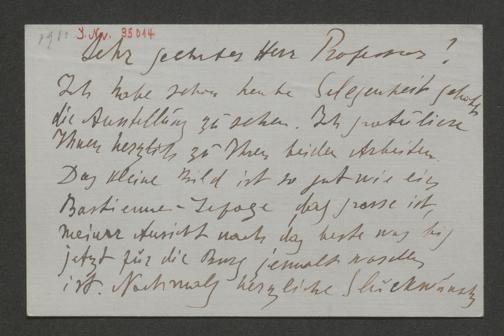 J. Nr. 95014
Sehr geehrter Herr Professor!
Ich habe schon heute Gelegenheit gehabt
die Austellung zu sehen. Ich gratuliere
Ihnen herzlich zu Ihren beiden Arbeiten.
Das kleine Bild ist so gut wie ein
Bastienne-Lepage, das grosse ist,
meiner Ansicht nach das beste was bis
jetzt für die Burg gemalt worden
ist. Nochmals herzliche Glückwünsche